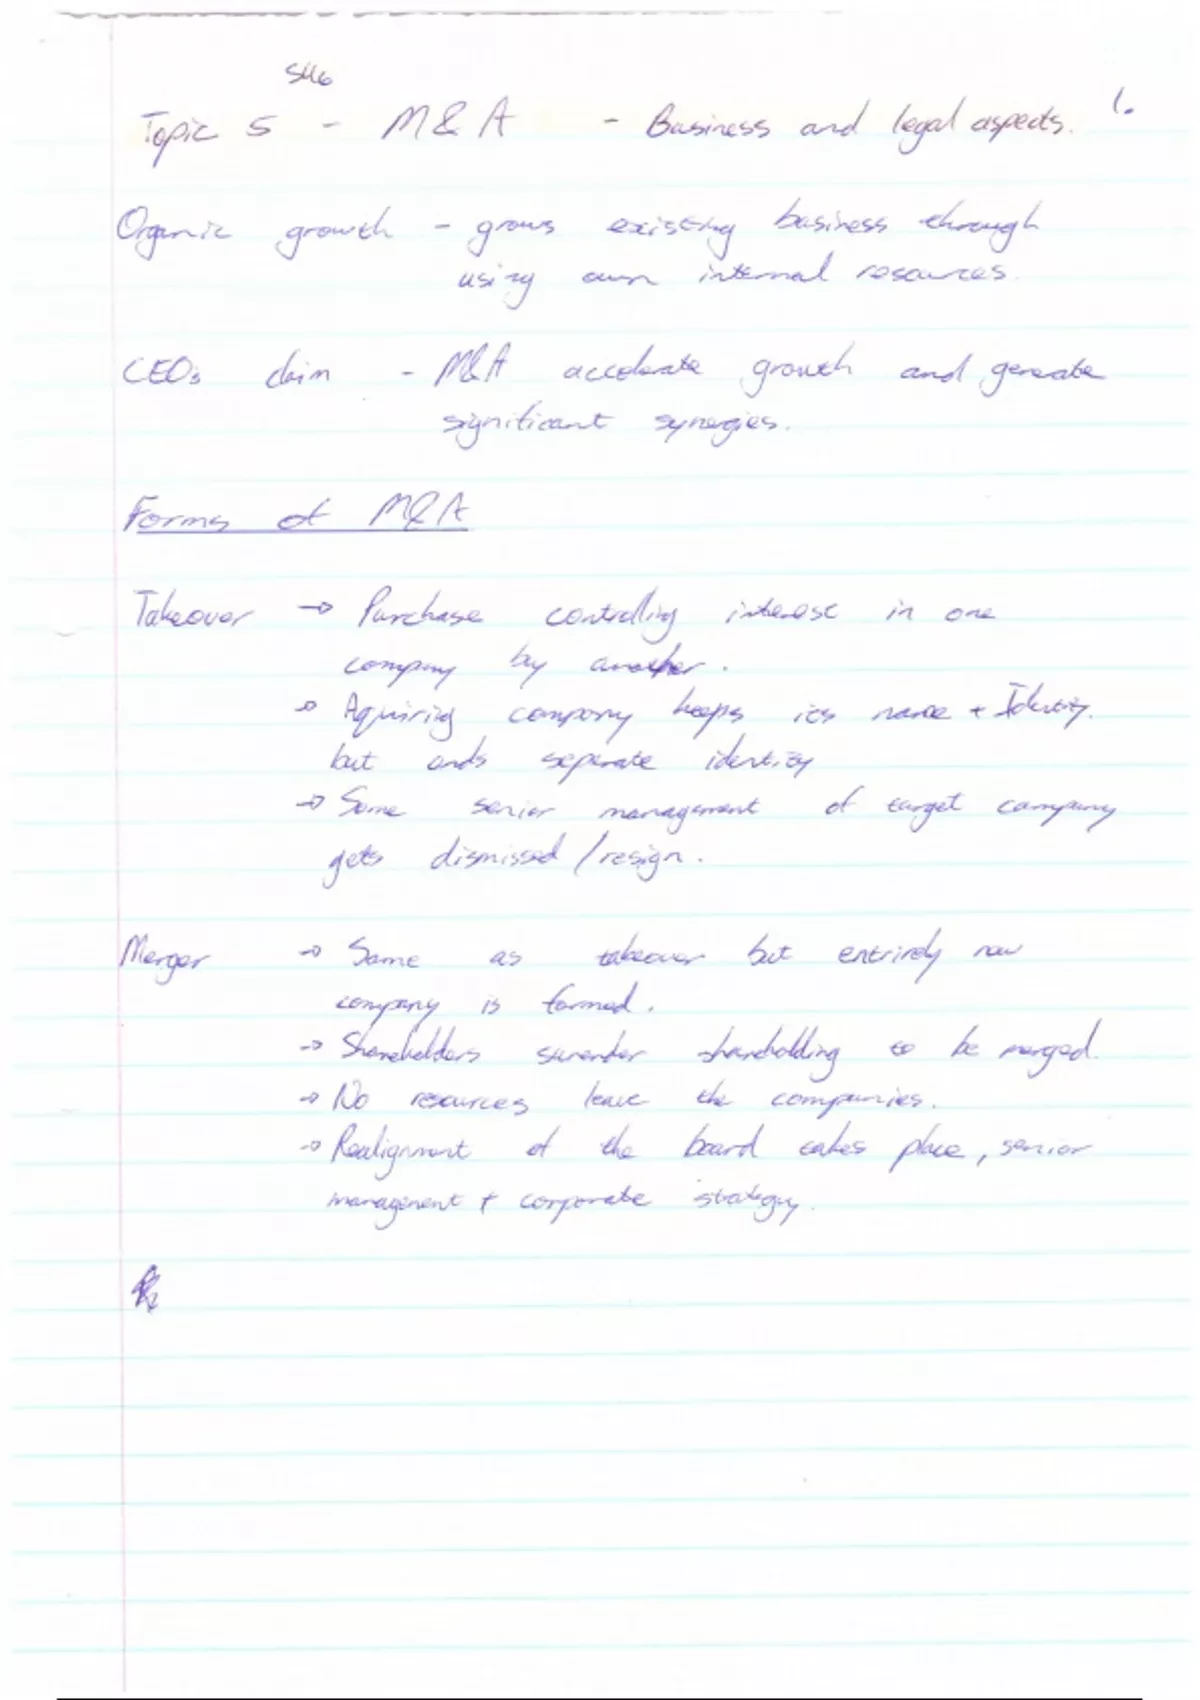 SU6
Topic 5 - M&A - Business and legal aspects. 1.
Organic growth - grows existing business through
using own internal resources.
CEOs claim - M&A accelerate growth and generate
significant synergies.
Forms of M&A
Takeover → Purchase controlling interest in one
company by another.
→ Aquiring company keeps its name + Identity.
but ends separate identity
→ Some senior management of target company
gets dismissed / resign.
Merger → Same as takeover but entirely new
company is formed.
→ Shareholders surender shareholding to be merged.
→ No resources leave the companies.
→ Realignment of the board takes place, senior
management + corporate strategy.